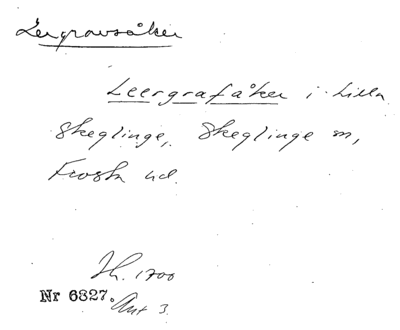 Lergravsåker
Leergrafåker i Lilla
Skeglinge, Skeglinge sn,
Frosta hd.
Jh. 1700
Nr 6827. Ant 3.